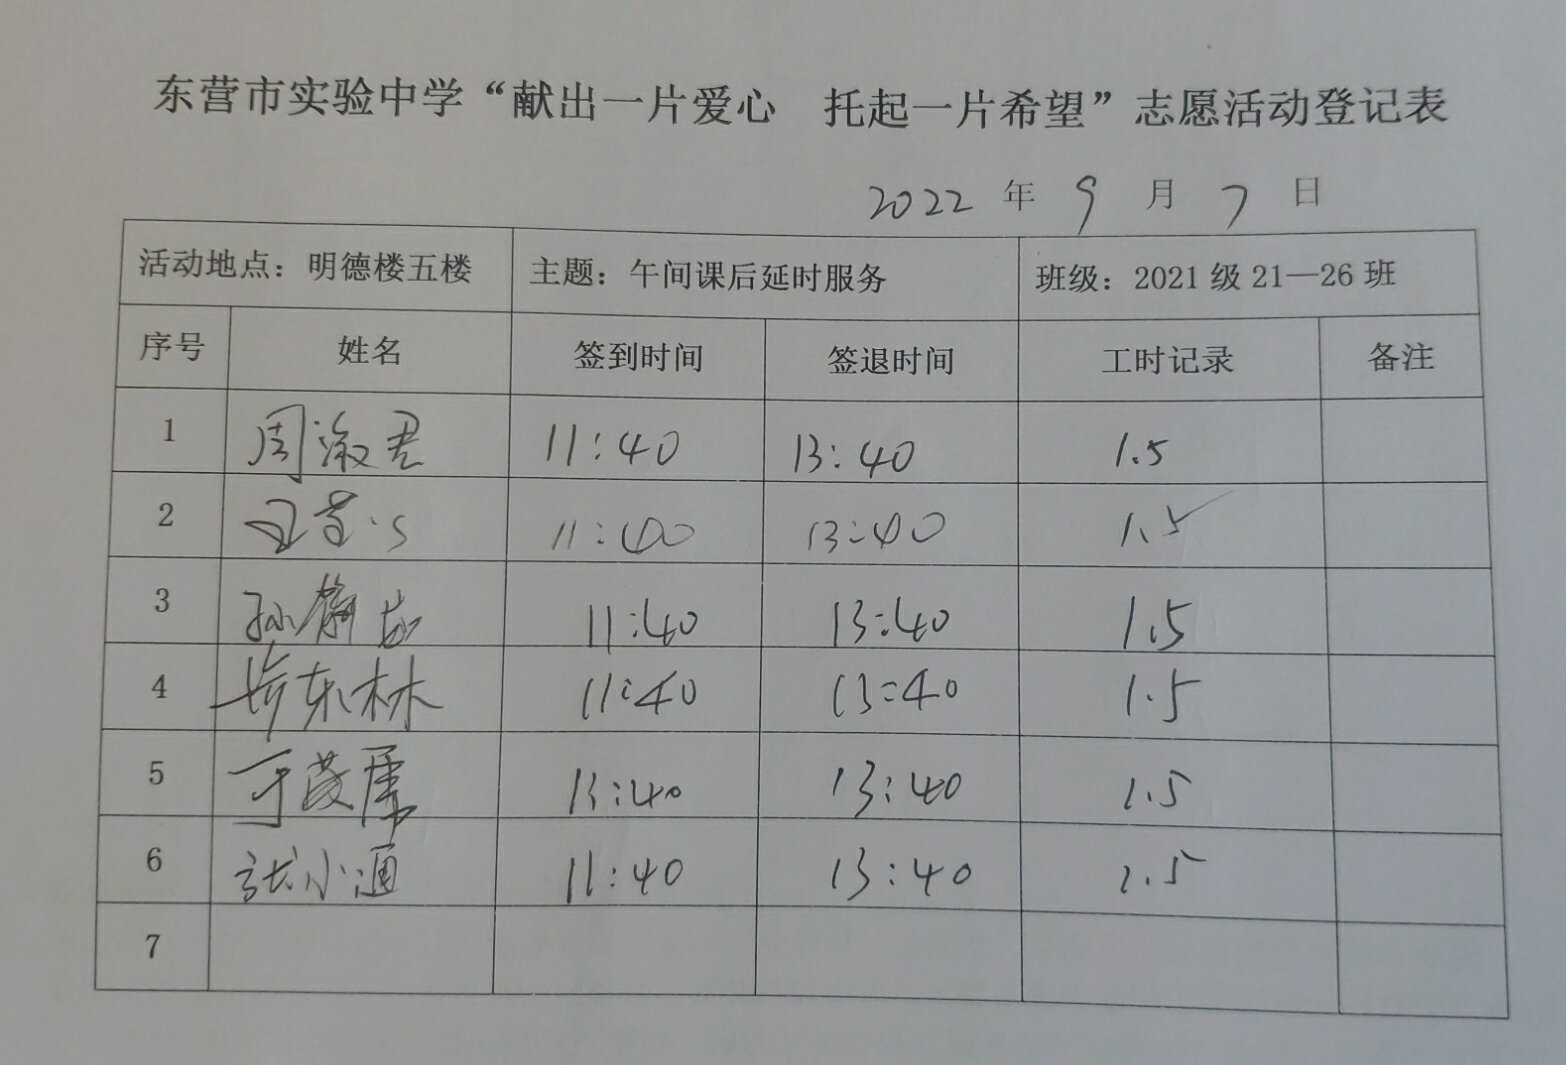 东营市实验中学“献出一片爱心 托起一片希望”志愿活动登记表
2022 年 9 月 7 日
活动地点：明德楼五楼 主题：午间课后延时服务 班级：2021 级 21—26 班
序号 姓名 签到时间 签退时间 工时记录 备注
1 周淑君 11:40 13:40 1.5
2 11:40 13:40 1.5
3 孙 11:40 13:40 1.5
4 东林 11:40 13:40 1.5
5 于 13:40 1.5
6 张小通 11:40 13:40 1.5
7